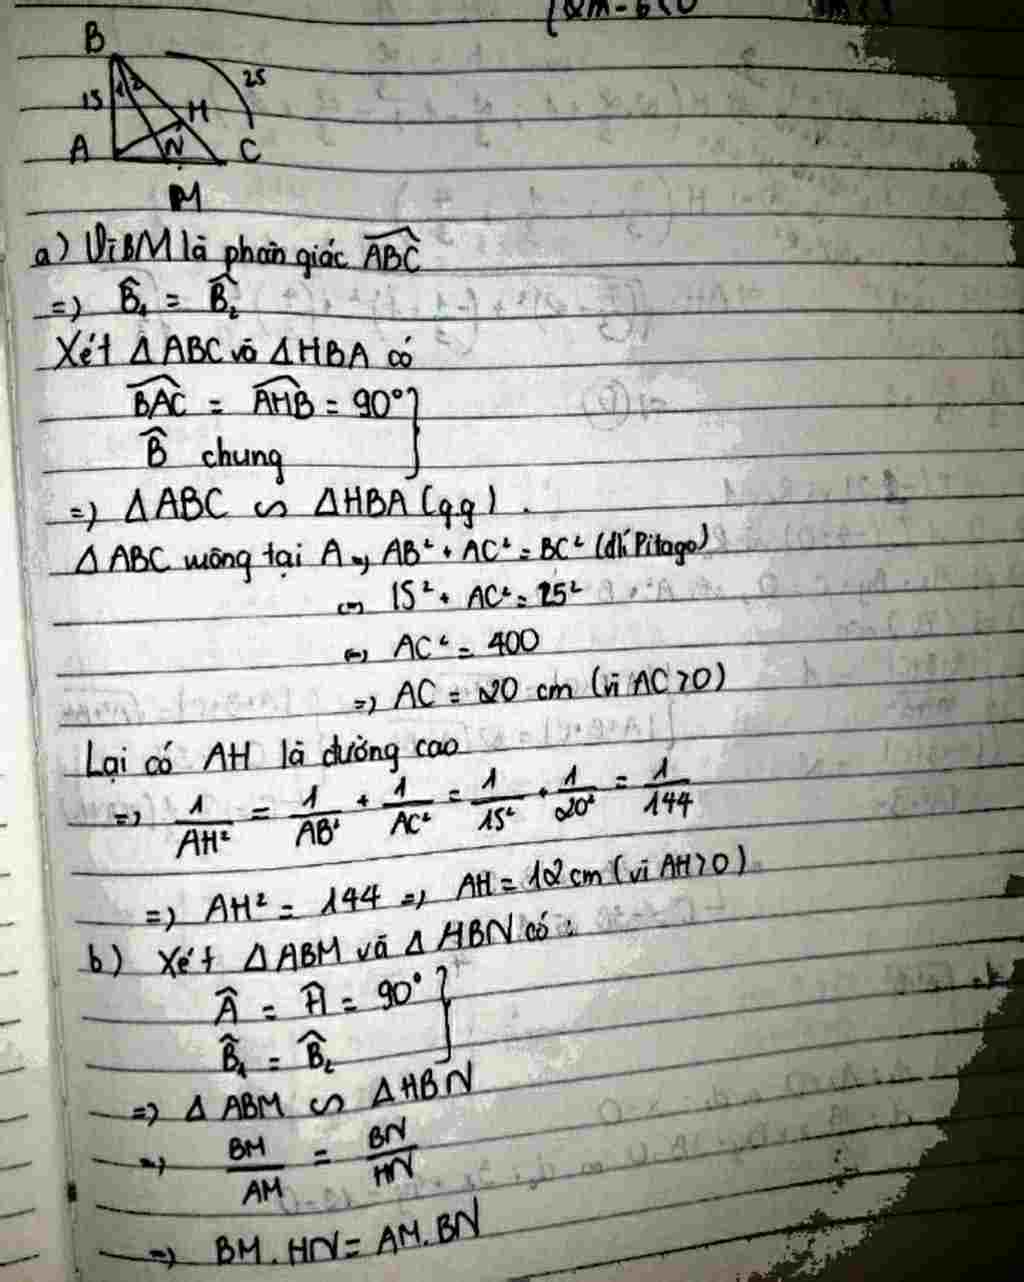 B
25
15
1 2
H
A
N
C
M
a) Vì BM là phân giác \widehat{ABC}
=) \widehat{B}₁ = \widehat{B}₂
Xét ΔABC và ΔHBA có
\widehat{BAC} = \widehat{AHB} = 90° }
\widehat{B} chung
=) ΔABC ∽ ΔHBA (gg).
ΔABC vuông tại A => AB² + AC² = BC² (đlí Pitago)
<=> 15² + AC² = 25²
<=> AC² = 400
=) AC = 20 cm (vì AC > 0)
Lại có AH là đường cao
=) 1/AH² = 1/AB² + 1/AC² = 1/15² + 1/20² = 1/144
=) AH² = 144 =) AH = 12 cm (vì AH > 0)
b) Xét ΔABM và ΔHBN có:
\widehat{A} = \widehat{H} = 90° }
\widehat{B}₁ = \widehat{B}₂
=) ΔABM ∽ ΔHBN
=) BM/AM = BN/HN
=) BM.HN = AM.BN